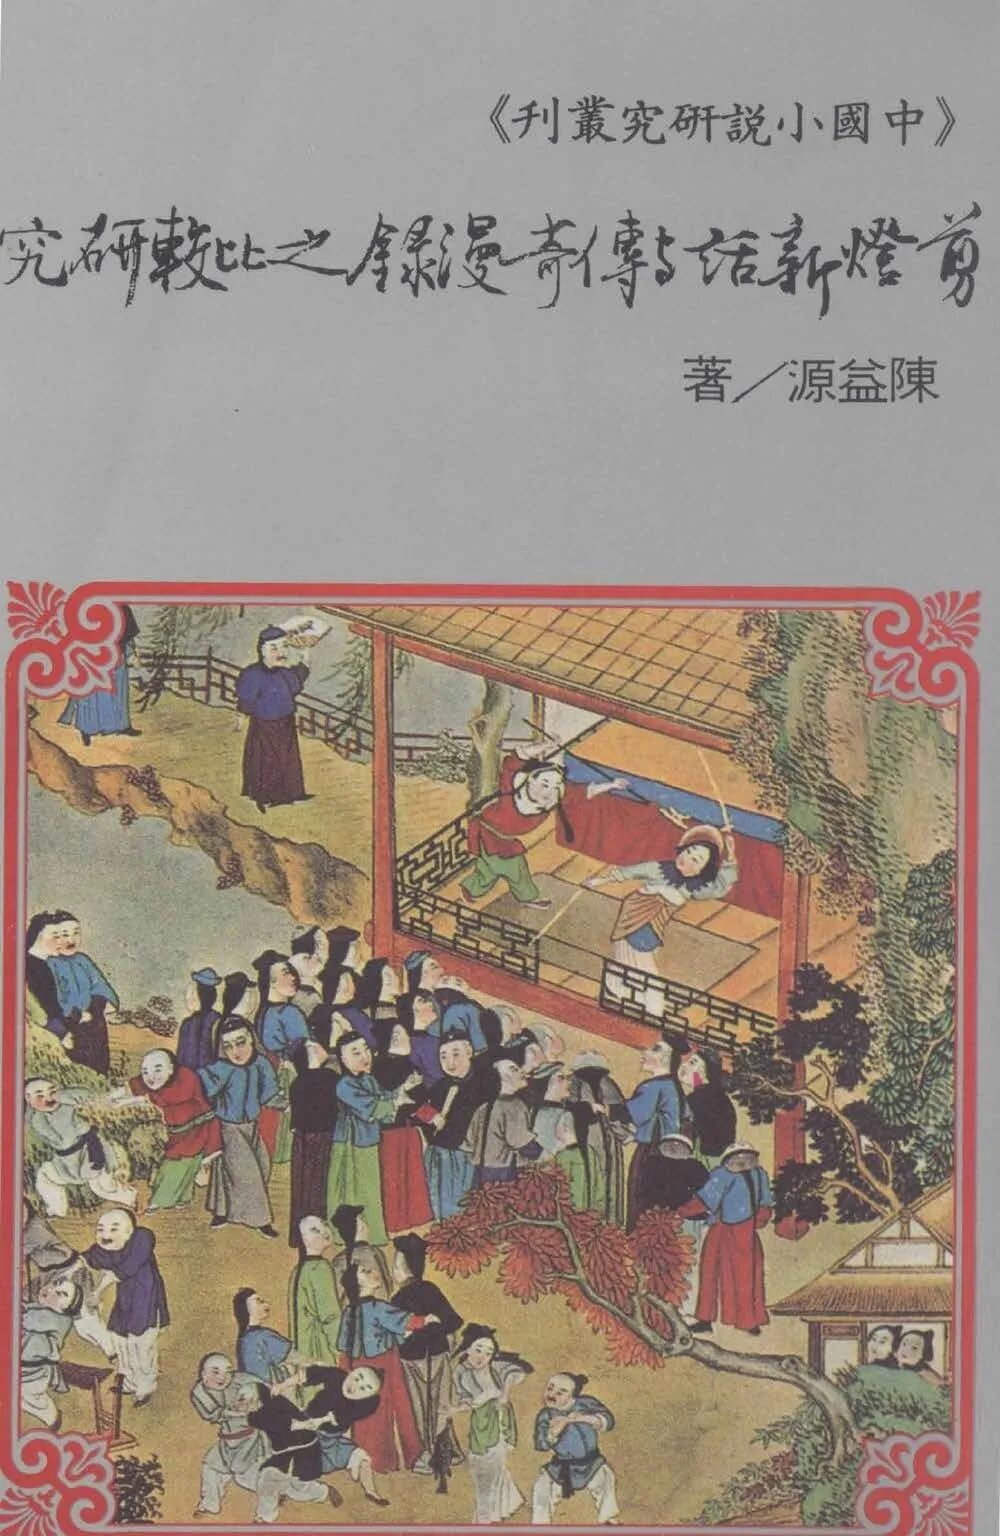 《中國小説研究叢刊》
剪燈新話與傳奇漫録之比較研究
陳益源／著